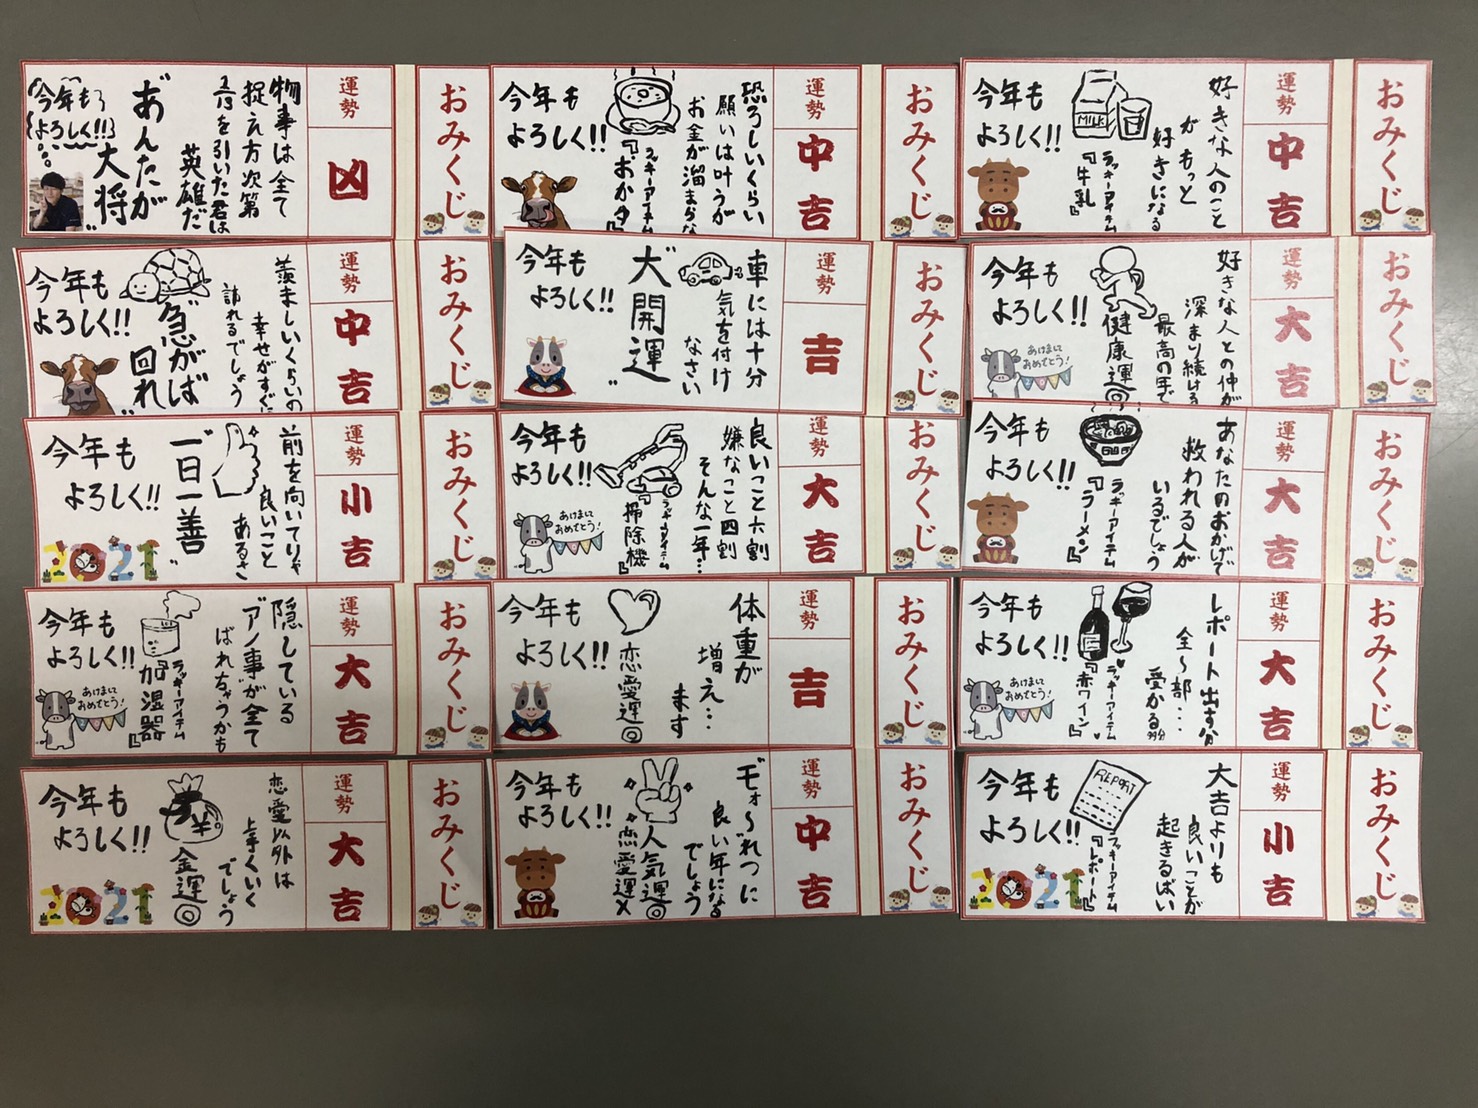 おみくじ
運勢
凶
物事は全て
捉え方次第
を引いた君は
英雄だ
あんたが
大将
今年も
よろしく!!
おみくじ
運勢
中吉
恐ろしいくらい
願いは叶うが
お金が溜まらな
ラッキーアイテム
『おかゆ
今年も
よろしく!!
おみくじ
運勢
中吉
好きな人のこと
がもっと
好きになる
MILK
ラッキーアイテム
『牛乳』
今年も
よろしく!!
おみくじ
運勢
中吉
羨ましいくらいの
幸せがすぐに
訪れるでしょう
"急がば
回れ"
今年も
よろしく!!
おみくじ
運勢
吉
車には十分
気を付け
なさい
"大開運"
今年も
よろしく!!
おみくじ
運勢
大吉
好きな人との仲が
深まり続ける
最高の年で
健康運◎
今年も
よろしく!!
あけまして
おめでとう!
おみくじ
運勢
小吉
前を向いてりゃ
良いこと
あるさ
"一日一善"
今年も
よろしく!!
2021
おみくじ
運勢
大吉
良いこと六割
嫌なこと四割
そんな一年…
ラッキーアイテム
『掃除機』
今年も
よろしく!!
あけまして
おめでとう!
おみくじ
運勢
大吉
あなたのおかげで
救われる人が
いるでしょう
ラッキーアイテム
『ラーメン』
今年も
よろしく!!
おみくじ
運勢
大吉
隠している
アノ事が全て
ばれちゃうかも
ラッキーアイテム
『加湿器』
今年も
よろしく!!
あけまして
おめでとう!
おみくじ
運勢
吉
体重が
増え…
ます
恋愛運◎
今年も
よろしく!!
おみくじ
運勢
大吉
レポート出す分
全〜部…
受かる
ラッキーアイテム
『赤ワイン』
今年も
よろしく!!
あけまして
おめでとう!
おみくじ
運勢
大吉
恋愛以外は
上手くいく
でしょう
金運◎
今年も
よろしく!!
2021
おみくじ
運勢
中吉
良い年になる
でしょう
人気運◎
恋愛運×
今年も
よろしく!!
おみくじ
運勢
小吉
大吉よりも
良いことが
起きるばい
REPORT
ラッキーアイテム
『レポート』
今年も
よろしく!!
2021